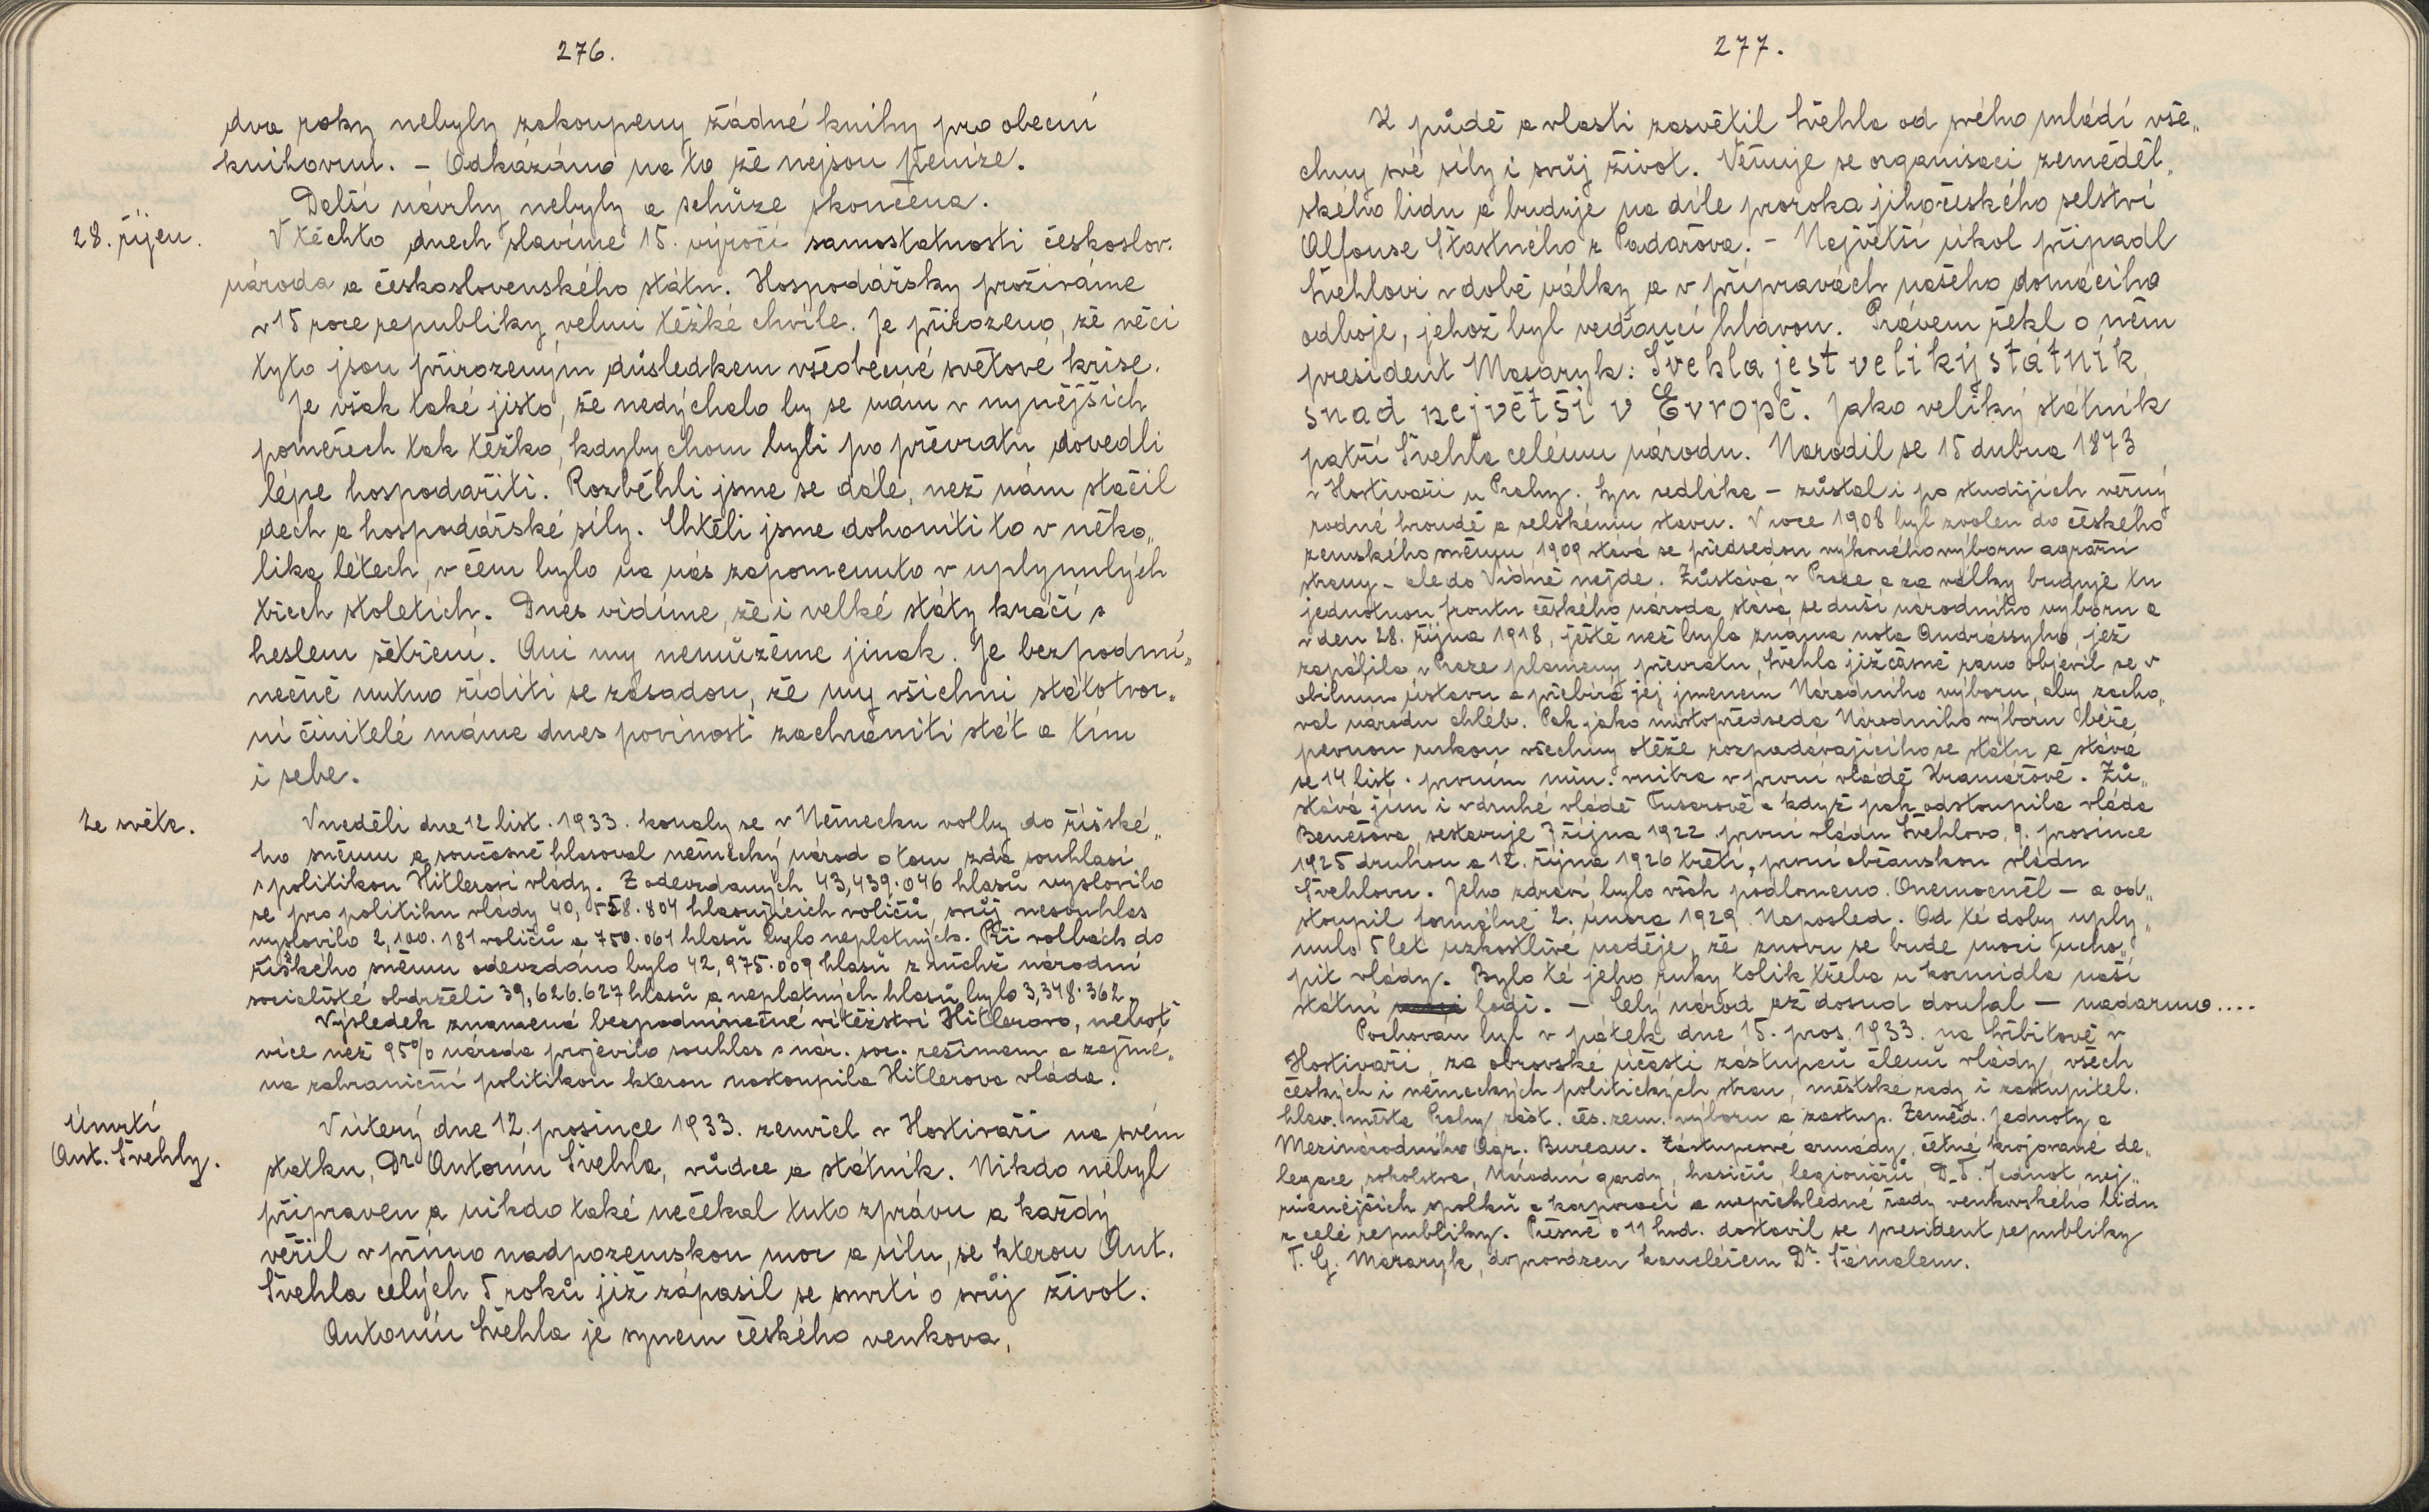 276.
dva roky nebyly zakoupeny žádné knihy pro obecní
knihovnu. – Odkázáno na to že nejsou peníze.
Další návrhy nebyly a schůze skončena.
28. říjen.
V těchto dnech slavíme 15. výročí samostatnosti českoslov.
národa a československého státu. Hospodářsky prožíváme
v 15 roce republiky velmi těžké chvíle. Je přirozeno, že věci
tyto jsou přirozeným důsledkem všeobecné světové krise.
Je však také jisto, že nedýchalo by se nám v nynějších
poměrech tak těžko, kdyby chom byli po převratu dovedli
lépe hospodařiti. Rozběhli jsme se dále, než nám stačil
dech a hospodářské síly. Chtěli jsme dohoniti to v něko„
lika létech, v čem bylo na nás zapomenuto v uplynulých
třech stoletích. Dnes vidíme, že i velké státy kráčí s
heslem šetření. Ani my nemůžeme jinak. Je bezpodmí„
nečně nutno říditi se zásadou, že my všichni státotvor„
ní činitelé máme dnes povinost zachrániti stát a tím
i sebe.
Ze světa.
V neděli dne 12 list. 1933. konaly se v Německu volby do říšské„
ho sněmu a současně hlasoval německý národ o tom zda souhlasí
s politikou Hitlerovi vlády. Z odevzdaných 43,439.046 hlasů vyslovilo
se pro politiku vlády 40,558.804 hlasujících voličů, svůj nesouhlas
vyslovilo 2,100.181 voličů a 750.061 hlasů bylo neplatných. Při volbách do
říškého sněmu odevzdáno bylo 42,975.009 hlasů z nichž národní
socialisté obdrželi 39,626.627 hlasů a neplatných hlasů bylo 3,348.362.
Výsledek znamená bezpodmínečné vítězství Hitlerovo, neboť
více než 95% národa projevilo souhlas s nár. soc. režimem a zejmé„
na zahraniční politikou kterou nastoupila Hitlerova vláda.
Úmrtí
Ant. Švehly.
V úterý dne 12. prosince 1933. zemřel v Hostivaři na svém
statku, Dr Antonín Švehla, vůdce a státník. Nikdo nebyl
připraven a nikdo také nečekal tuto zprávu a každý
věřil v přímo nadpozemskou moc a sílu, se kterou Ant.
Švehla celých 5 roků již zápasil se smrtí o svůj život.
Antonín Švehla je synem českého venkova,
277.
K půdě a vlasti zasvětil Švehla od svého mládí vše„
chny své síly i svůj život. Věnuje se organisaci zeměděl„
ského lidu a buduje na díle proroka jihočeského selství
Alfonse Šťastného z Padařova. – Největší úkol připadl
Švehlovi v době války a v přípravách našeho domácího
odboje, jehož byl vedoucí hlavou. Právem řekl o něm
president Masaryk: Švehla jest veliký státník,
snad největší v Evropě. Jako veliký státník
patří Švehla celému národu. Narodil se 15 dubna 1873
v Hostivaři u Prahy. Syn sedláka – zůstal i po studijích věrný
rodné hroudě a selskému stavu. V roce 1908 byl zvolen do českého
zemského sněmu 1909 stává se předsedou výkonného výboru agrární
strany – ale do Vídně nejde. Zůstává v Praze a za války buduje tu
jednotnou frontu českého národa, stává se duší národního výboru a
v den 28. října 1918, ještě než byla známa nota Andrássyho, jež
zapálila v Praze plameny převratu, Švehla již časně ráno objevil se v
obilnim ústavu a přebírá jej jmenem Národního výboru, aby zacho„
val národu chléb. Pak jako místopředseda Národního výboru béře
pevnou rukou všechny otěže rozpadávajícího se státu a stává
se 14 list. prvním min. vnitra v první vládě Kramářově. Zů„
stává jím i v druhé vládě Tusarově a když pak odstoupila vláda
Benešova, sestavuje 7 října 1922 první vládu Švehlovo, 9. prosince
1925 druhou a 12. října 1926 třetí, první občanskou vládu
Švehlovu. Jeho zdraví bylo však podlomeno. Onemocněl – a od„
stoupil formálně 2. února 1929. Naposled. Od té doby uply„
nulo 5 let uzkostlivé naděje, že znovu se bude moci ucho„
pit vlády. Bylo té jeho ruky tolik třeba u kormidla naší
státní lodi. – Celý národ až dosud doufal – nadarmo....
Pochován byl v pátek dne 15. pros. 1933. na hřbitově v
Hostivaři, za obrovské účasti zástupců členů vlády, všech
českých i německých politických stran, městské rady i zastupitel.
hlav. města Prahy, zást. čes. zem. výboru a zastup. Zeměd. Jednoty a
Mezinárodního Agr. Bureau. Zástupcové armády, četné krojované de„
legace sokolstva, Národní gardy, hasičů, legionářů, D.T. Jednot, nej„
různějších spolků a korporací a nepřehledné řady venkovského lidu
z celé republiky. Přesně o 11 hod. dostavil se president republiky
T. G. Masaryk, doprovázen kancléřem Dr. Šámalem.